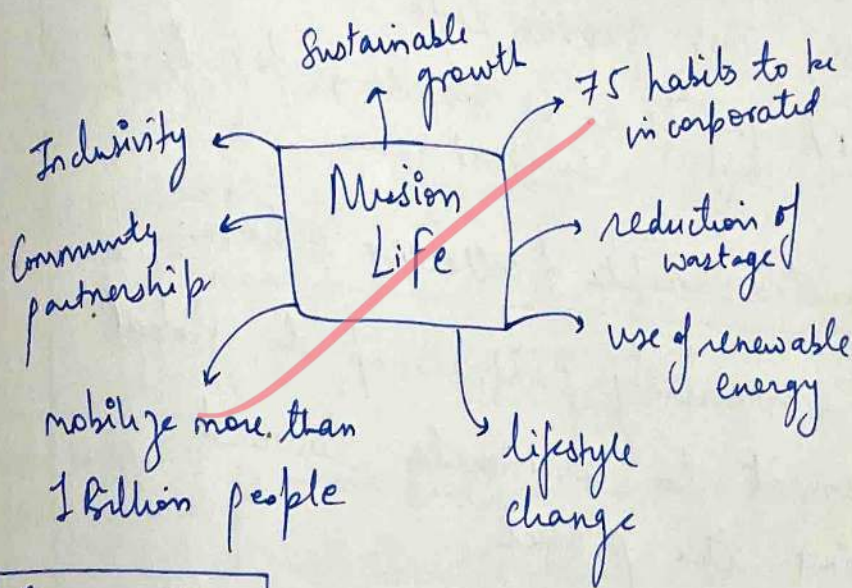 Sustainable
growth
75 habits to be
incorporated
Inclusivity
Mission
Life
reduction of
wastage
Community
partnership
use of renewable
energy
mobilize more than
1 Billion people
lifestyle
change